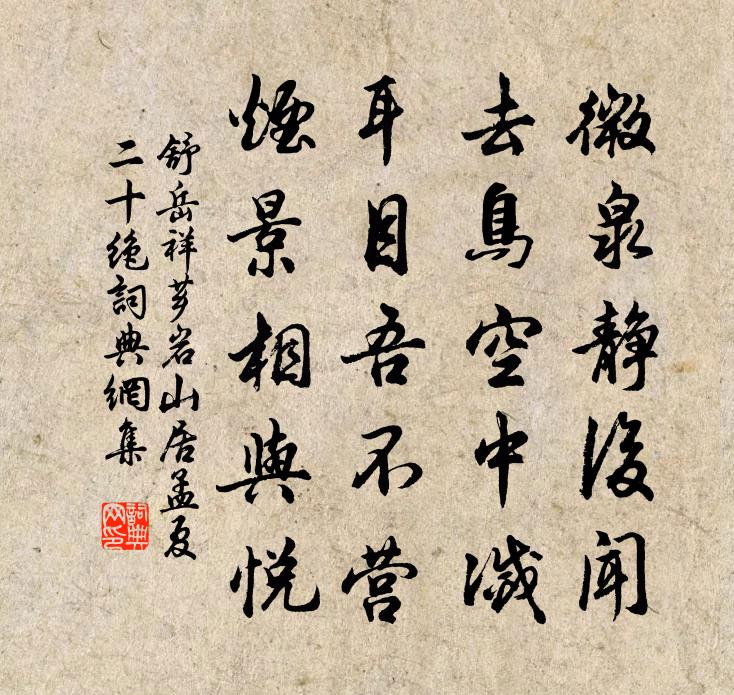 微泉静後闻
去鳥空中滅
耳目吾不营
煙景相與悦
舒岳祥芗岩山居孟夏
二十绝詞典網集
詞典
网印